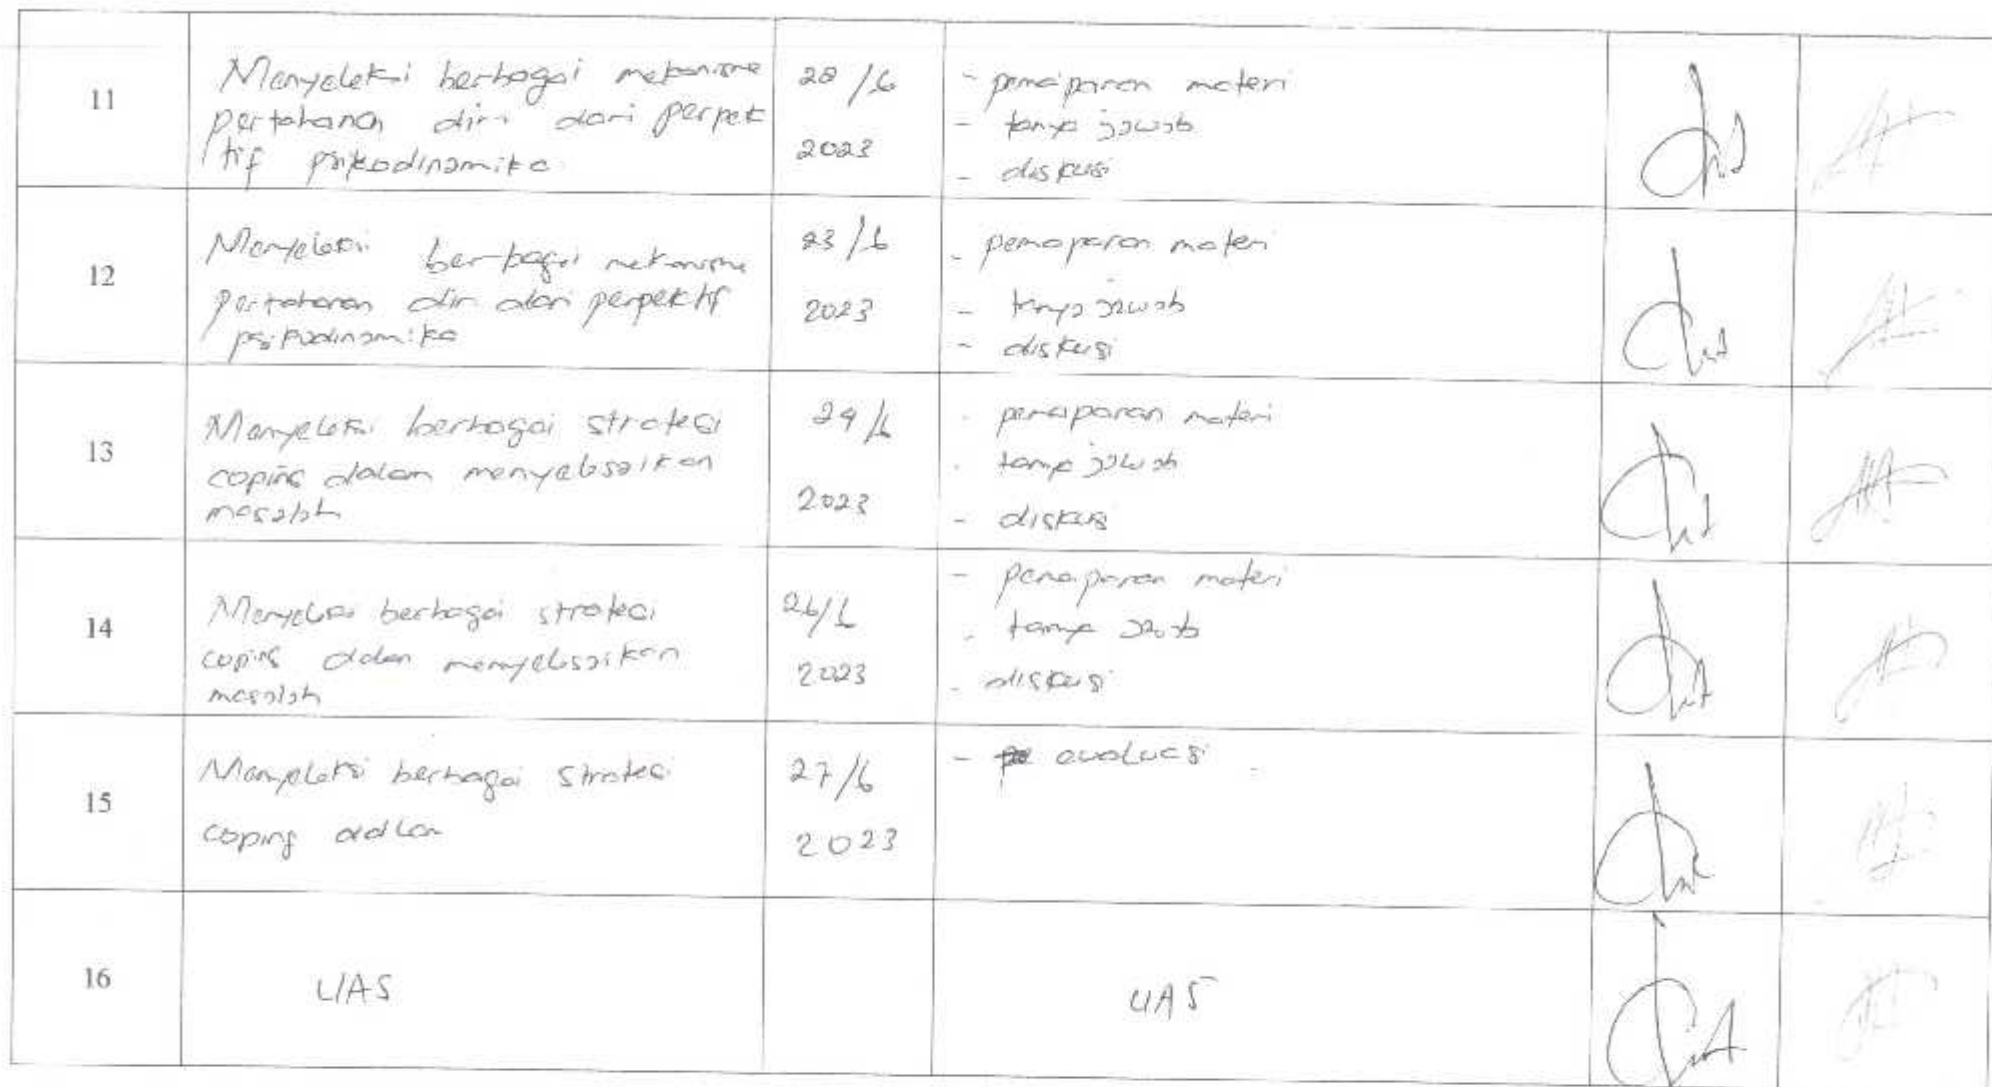 11
Menyeleksi berbagai mekanisme
pertahanan diri dari perpek
tif psikodinamika
28/6
2023
- pemaparan materi
- tanya jawab
- diskusi
12
Menyeleksi berbagai mekanisme
pertahanan diri dari perpektif
psikodinamika
23/6
2023
- pemaparan materi
- tanya jawab
- diskusi
13
Menyeleksi berbagai strategi
coping dalam menyelesaikan
masalah
24/6
2023
- pemaparan materi
- tanya jawab
- diskusi
14
Menyeleksi berbagai strategi
coping dalam menyelesaikan
masalah
26/6
2023
- pemaparan materi
- tanya jawab
- diskusi
15
Menyeleksi berbagai strategi
coping
27/6
2023
- evaluasi
16
UAS
UAS